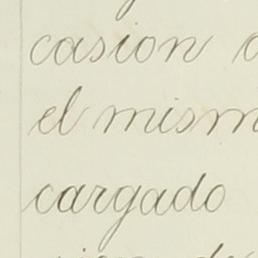 casion
el mism
cargado